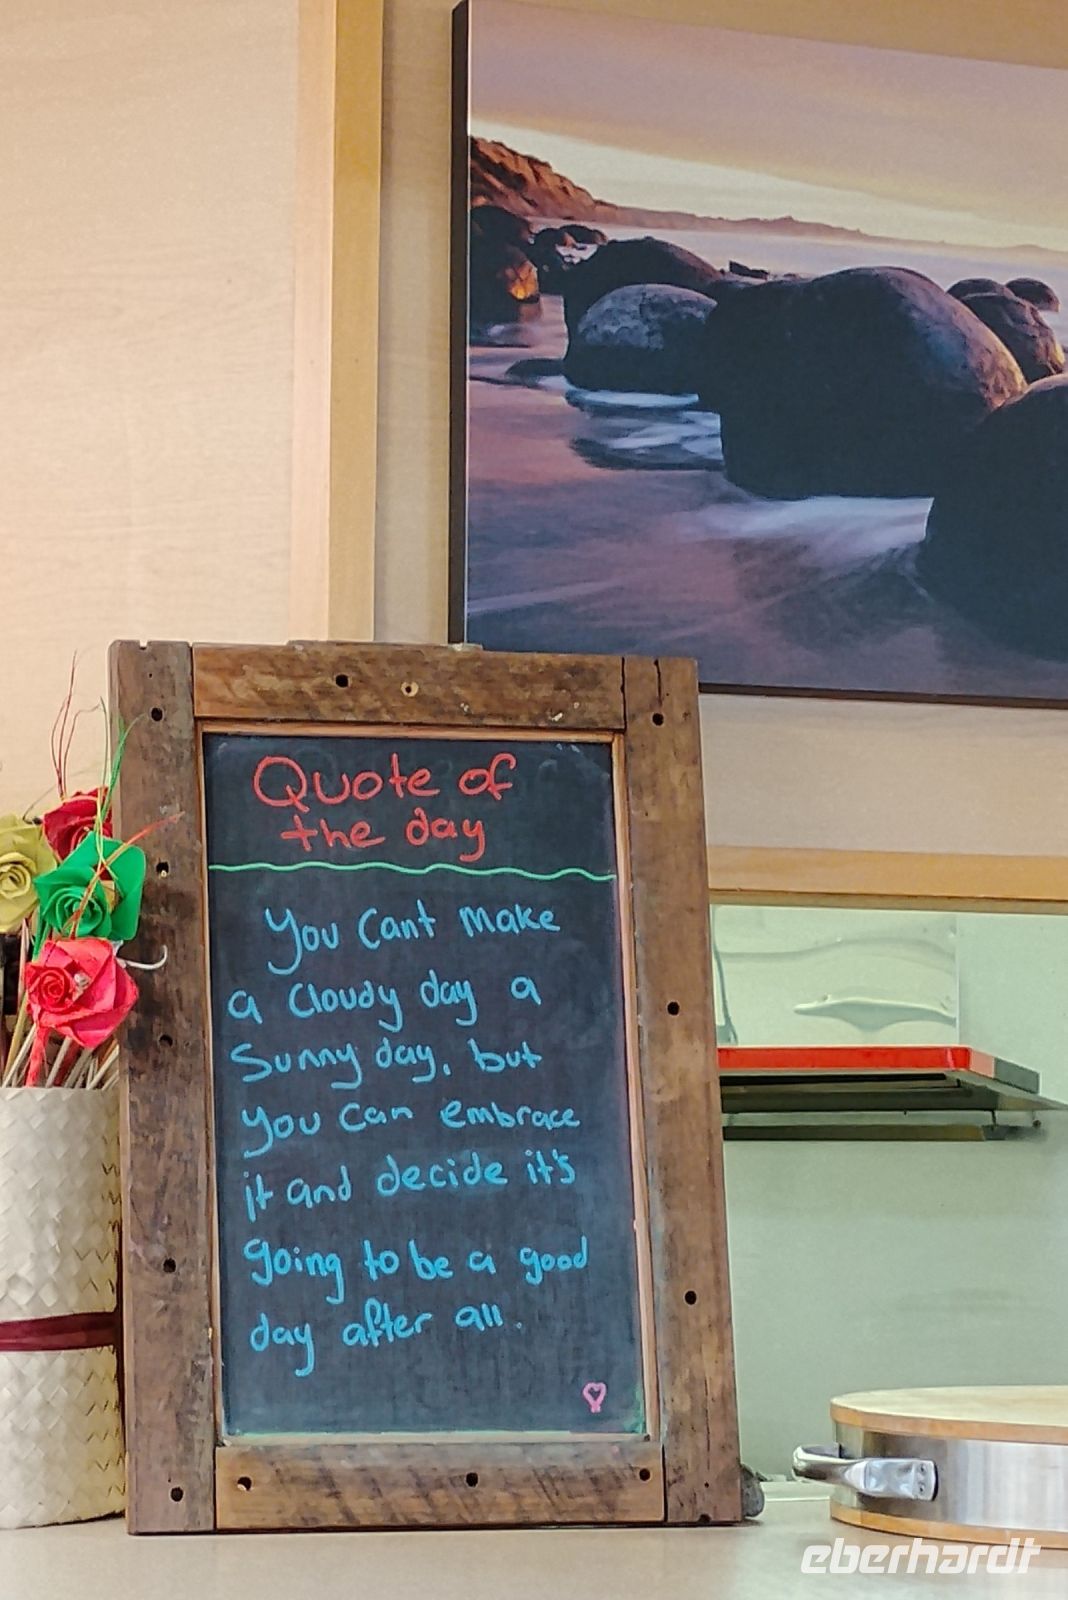 Quote of
the day
You Cant make
a Cloudy day a
Sunny day, but
you can embrace
it and decide it's
going to be a good
day after all.
eberhardt